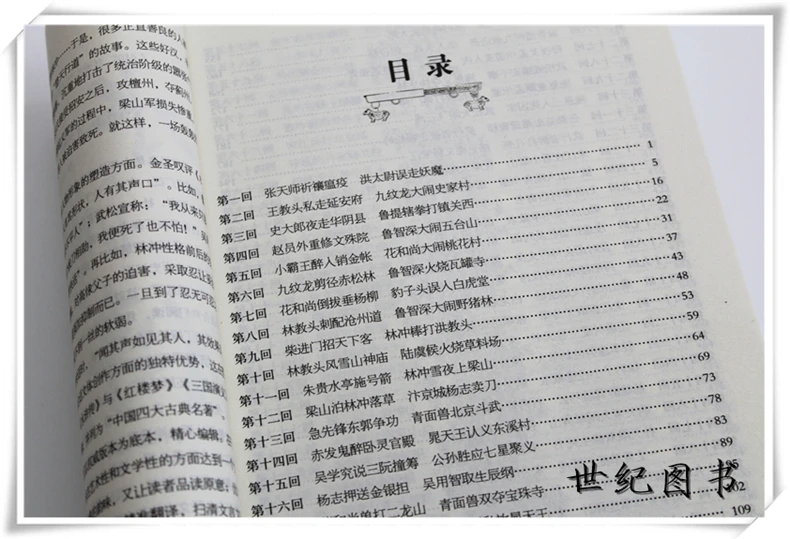 于是，很多正直善良的人
天行道”的故事。这些好汉
地打击了统治阶级的嚣
招安之后，攻檀州、夺蓟州
的过程中，梁山军损失惨重
害致死。就这样，一场轰轰
形象的塑造方面。金圣叹评《
状，人有其声口”。比如，
人”；武松宣称：“我从来只
相助，我便死了也不怕！”
”。再比如，林冲性格前后的
父子的迫害，采取忍让
而已。一旦到了忍无可忍
的软弱。
“闻其声如见其人，其效
创作方面的独特优势，这在
与《红楼梦》《三国演义
列为“中国四大古典名著”
版本为底本，精心编辑。
性和文学性的方面达到一
，又让读者品读原意；
翻译，扫清文言
目录
第一回 张天师祈禳瘟疫 洪太尉误走妖魔 1
第二回 王教头私走延安府 九纹龙大闹史家村 5
第三回 史大郎夜走华阴县 鲁提辖拳打镇关西 16
第四回 赵员外重修文殊院 鲁智深大闹五台山 22
第五回 小霸王醉入销金帐 花和尚大闹桃花村 31
第六回 九纹龙剪径赤松林 鲁智深火烧瓦罐寺 37
第七回 花和尚倒拔垂杨柳 豹子头误入白虎堂 43
第八回 林教头刺配沧州道 鲁智深大闹野猪林 48
第九回 柴进门招天下客 林冲棒打洪教头 53
第十回 林教头风雪山神庙 陆虞候火烧草料场 59
第十一回 朱贵水亭施号箭 林冲雪夜上梁山 64
第十二回 梁山泊林冲落草 汴京城杨志卖刀 69
第十三回 急先锋东郭争功 青面兽北京斗武 73
第十四回 赤发鬼醉卧灵官殿 晁天王认义东溪村 78
第十五回 吴学究说三阮撞筹 公孙胜应七星聚义 83
第十六回 杨志押送金银担 吴用智取生辰纲 89
单打二龙山 青面兽双夺宝珠寺 95
晁天王 102
109
世纪图书